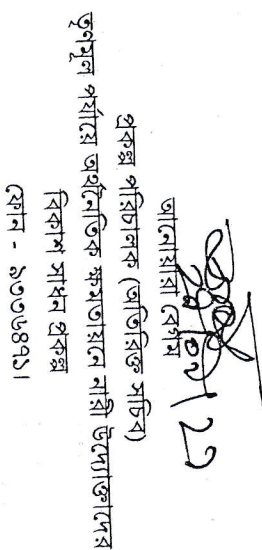 আনোয়ারা বেগম
প্রকল্প পরিচালক (অতিরিক্ত সচিব)
তৃণমূল পর্যায়ে অর্থনৈতিক ক্ষমতায়নে নারী উদ্যোক্তাদের
বিকাশ সাধন প্রকল্প
ফোন - ৯৩৩৬৪৭১।